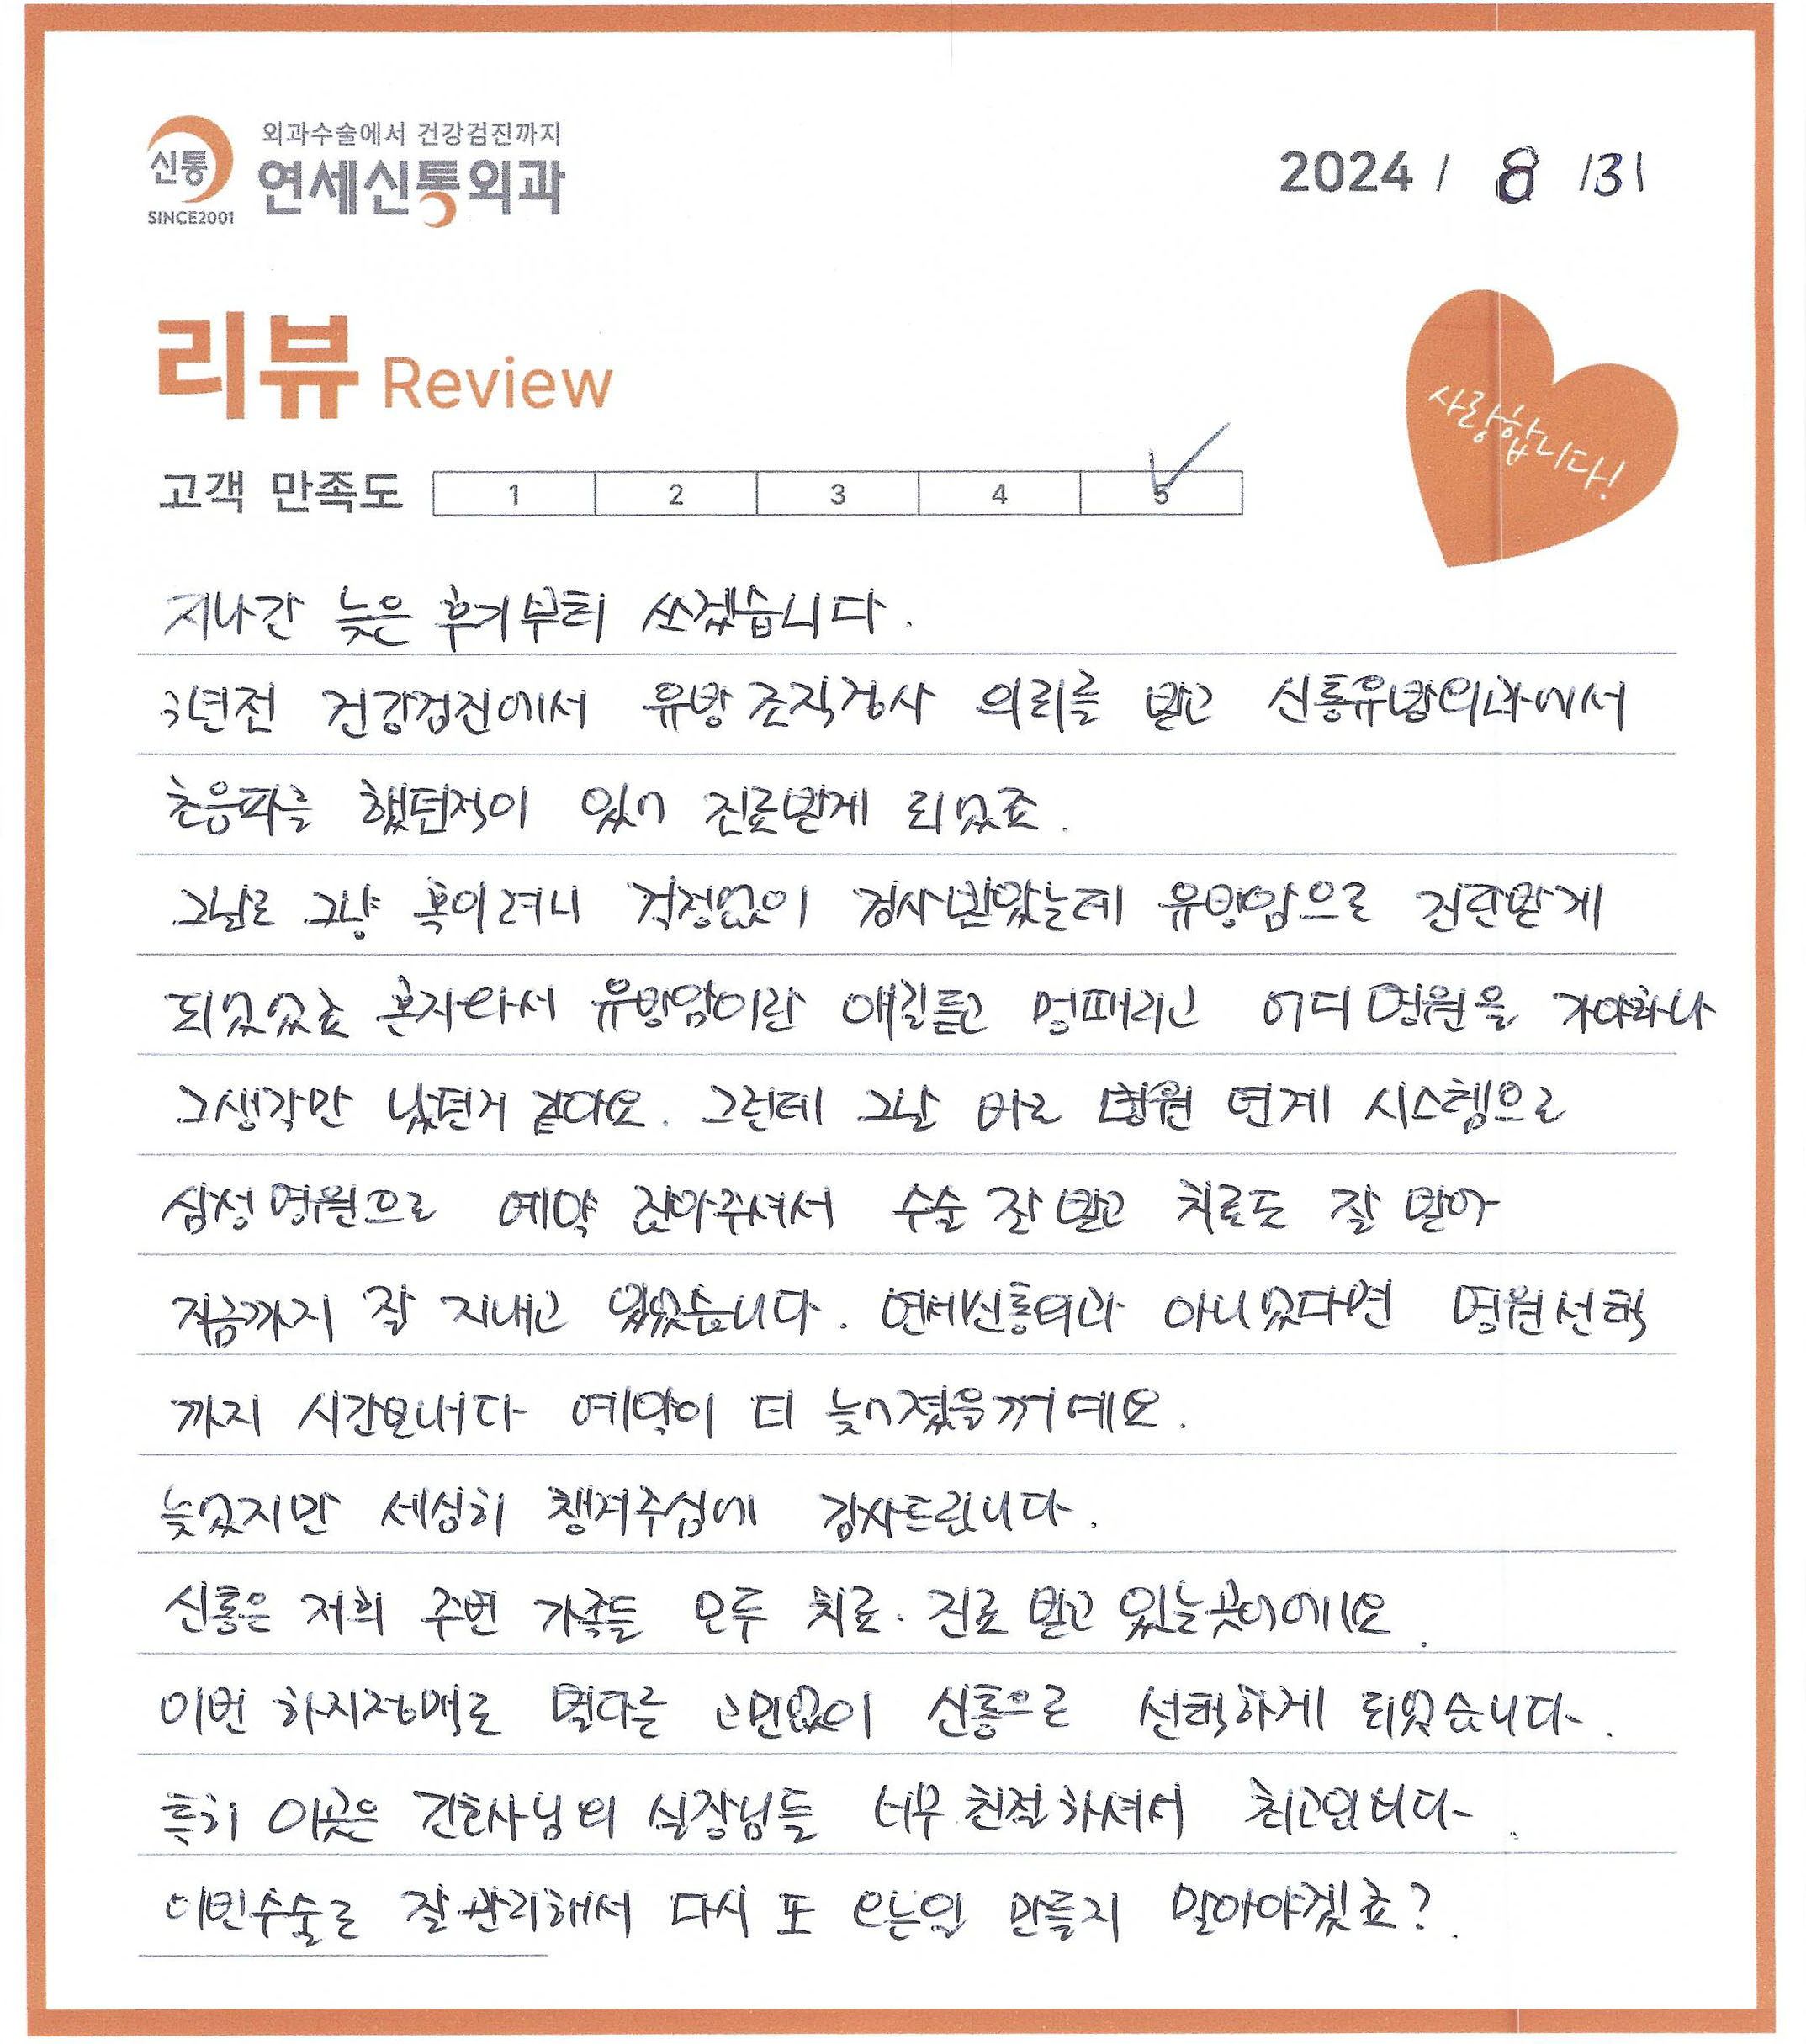 외과수술에서 건강검진까지
신통
연세신통외과
SINCE2001
2024 / 8 /31
리뷰 Review
사랑합니다!
고객 만족도 1 2 3 4 5
지나간 늦은 후기부터 쓰겠습니다.
3년전 건강검진에서 유방조직검사 의뢰를 받고 신통유방외과에서
초음파를 했던적이 있어 진료받게 되었죠.
그날로 그냥 혹이려니 걱정없이 검사받았는데 유방암으로 진단받게
되었었죠 혼자와서 유방암이란 얘길듣고 멍때리고 어디 병원을 가야하나
그생각만 났던거 같아요. 그런데 그날 바로 병원 연계 시스템으로
삼성병원으로 예약 잡아주셔서 수술 잘 받고 치료도 잘 받아
지금까지 잘 지내고 있었습니다. 연세신통외과 아니었다면 병원선택
까지 시간보내다 예약이 더 늦어졌을꺼예요.
늦었지만 세심히 챙겨주심에 감사드립니다.
신통은 저희 주변 가족들 모두 치료·진료 받고 있는곳이에요.
이번 하지정맥도 별다른 고민없이 신통으로 선택하게 되었습니다.
특히 이곳은 간호사님외 실장님들 너무 친절하셔서 최고입니다.
이번수술로 잘 관리해서 다시 또 오는일 만들지 말아야겠죠?.